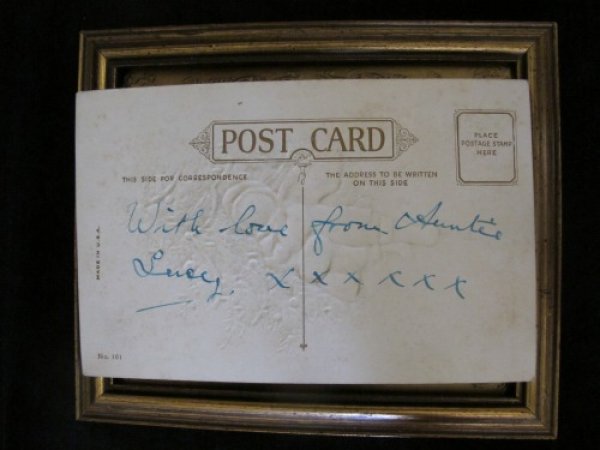 POST CARD
PLACE
POSTAGE STAMP
HERE
THIS SIDE FOR CORRESPONDENCE
THE ADDRESS TO BE WRITTEN
ON THIS SIDE
With love from Auntie
Lucy. x x x x x x
MADE IN U.S.A.
No. 101